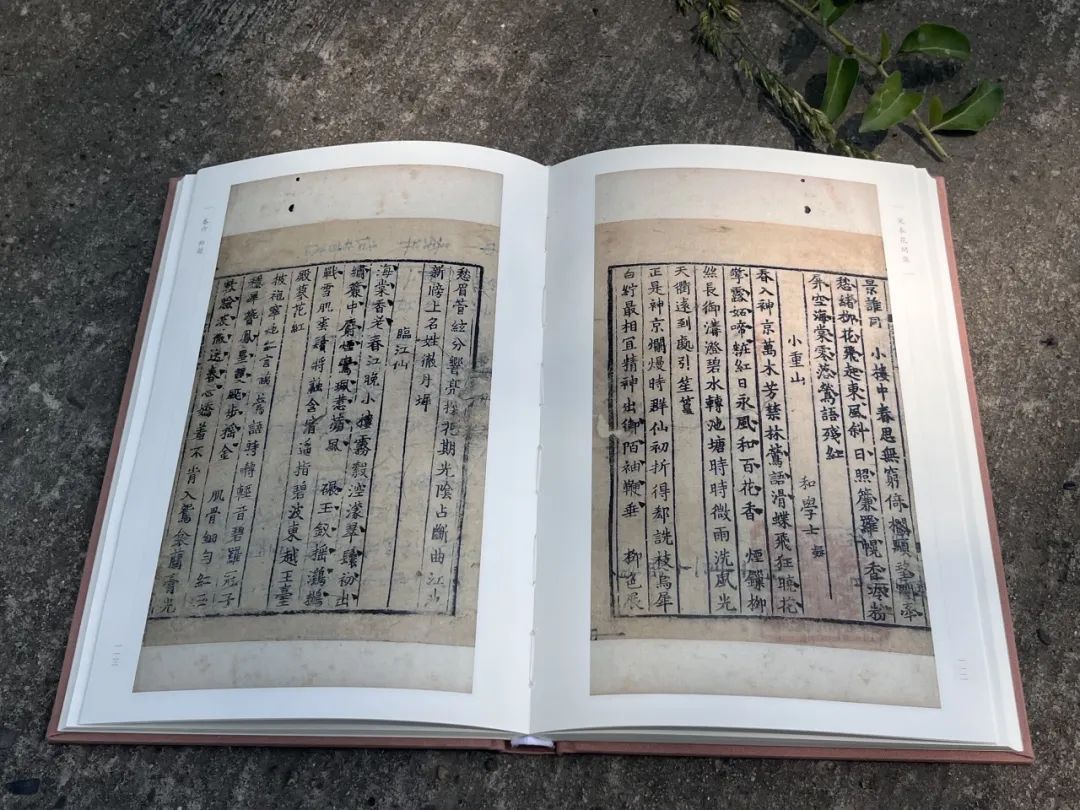 本花間集
景誰同 小樓中春思無窮倚欄顒望
愁緒柳花飛起東風斜日照簾羅幌香冷粉
屏空海棠零落鶯語殘紅
小重山 和學士 凝
春入神京萬木芳禁林鶯語滑蝶飛狂曉花
擎露妬啼粧紅日永風和百花香 煙鎖柳
絲長御溝澄碧水轉池塘時時微雨洗風光
天衢遠到處引笙篁
正是神京爛熳時群仙初折得郄詵枝烏犀
白紵最相宜精神出御陌袖鞭垂 柳色展
一二二
愁眉管絃分響亮探花期光陰占斷曲江池
新牓上名姓徹丹墀
臨江仙
海棠香老春江晚小樓霧縠涳濛翠鬟初出
繡簾中麝煙鸞珮惹蘋風 碾玉釵搖鸂鶒
戰雪肌雲鬢將融含情遙指碧波東越王臺
殿蓼花紅
披袍窣地紅宮錦鶯語時囀輕音碧羅冠子
穩犀簪鳳皇雙颭步搖金 肌骨細勻紅玉
軟臉波微送春心嬌羞不肯入鴛衾蘭膏光
卷六 和凝
一二三